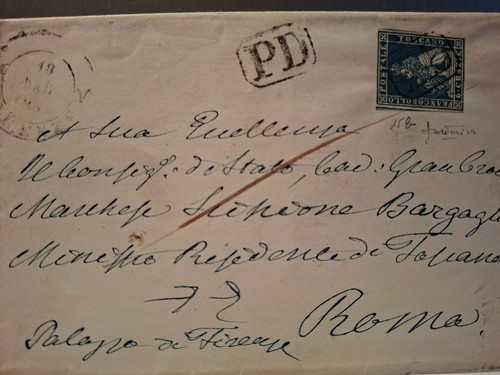 18
PD
FRANCOBOLLO
POSTALE
TOSCANO
15B
A Sua Eccellenza
Il Consig: di Stato, Cav: Gran Croce
Marchese Scipione Bargagli
Ministro Residente di Toscana
Palazzo di Firenze
Roma.